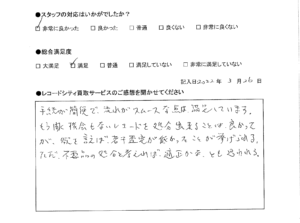 ●スタッフの対応はいかがでしたか？
□非常に良かった □良かった □普通 □良くない □非常に良くない
●総合満足度
□大満足 □満足 □普通 □満足していない □非常に満足していない
記入日2022年 3月26日
●レコードシティ買取サービスのご感想を聞かせてください
手続が簡便で、流れがスムーズな点は満足しています。
もう聴く機会もないレコードを処分出来ることは良かった
が、欲を言えば、若干査定が低かったことが挙げられる。
ただ、不要品の処分と考えれば、適正かな、とも思われる。